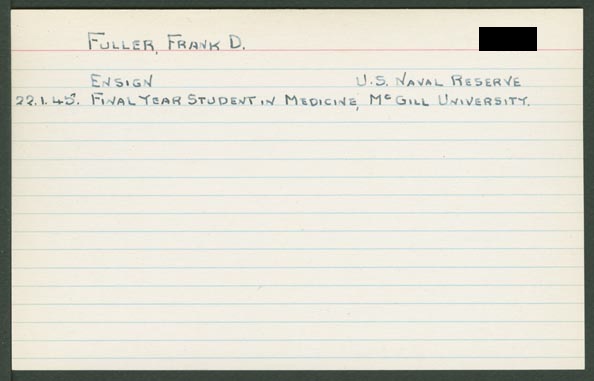 FULLER, FRANK D.
ENSIGN U.S. NAVAL RESERVE
22.1.45. FINAL YEAR STUDENT IN MEDICINE, McGILL UNIVERSITY.